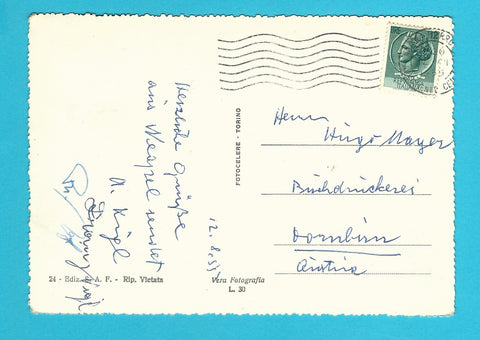 Herzliche Grüße
aus Neapel sendet
12.8.55
FOTOCELERE - TORINO
Herrn
Hugo Mayer
Buchdruckerei
Dornbirn
Austria
24 - Ediz. A. F. - Rip. Vietata
Vera Fotografia
L. 30